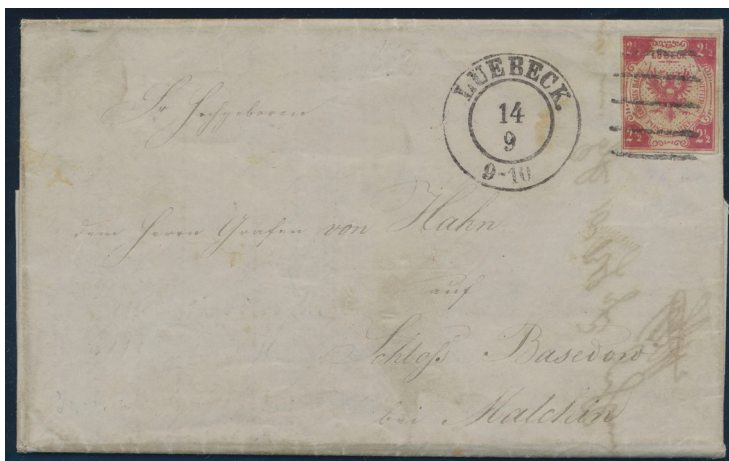 2½ 2½
LÜBECK
2½ 2½
LUEBECK.
14
9
9-10
Sr Hochgeboren
dem Herrn Grafen von Hahn
auf
Schloß Basedow
bei Malchin